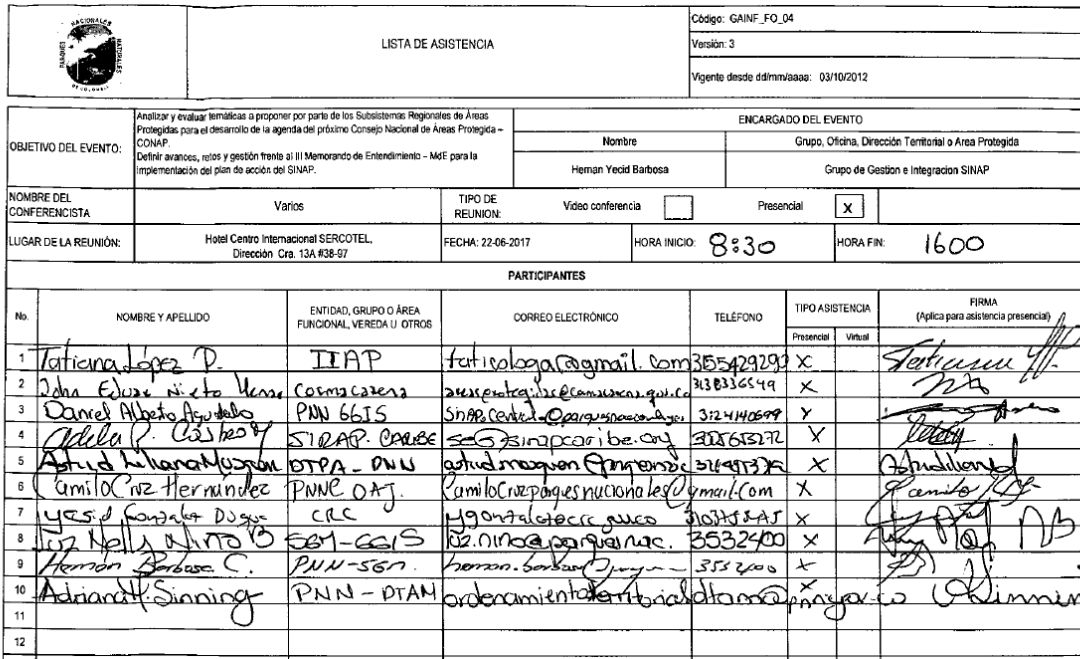 PARQUES NACIONALES NATURALES
DE COLOMBIA
LISTA DE ASISTENCIA
Código: GAINF_FO_04
Versión: 3
Vigente desde dd/mm/aaaa: 03/10/2012
OBJETIVO DEL EVENTO:
Analizar y evaluar temáticas a proponer por parte de los Subsistemas Regionales de Áreas
Protegidas para el desarrollo de la agenda del próximo Consejo Nacional de Áreas Protegida –
CONAP.
Definir avances, retos y gestión frente al III Memorando de Entendimiento – MdE para la
implementación del plan de acción del SINAP.
ENCARGADO DEL EVENTO
Nombre Grupo, Oficina, Dirección Territorial o Area Protegida
Hernan Yecid Barbosa Grupo de Gestion e Integracion SINAP
NOMBRE DEL
CONFERENCISTA
Varios
TIPO DE
REUNION:
Video conferencia Presencial X
LUGAR DE LA REUNIÓN:
Hotel Centro Internacional SERCOTEL,
Dirección Cra. 13A #38-97
FECHA: 22-06-2017 HORA INICIO: 8:30 HORA FIN: 1600
PARTICIPANTES
No. NOMBRE Y APELLIDO
ENTIDAD, GRUPO O ÁREA
FUNCIONAL, VEREDA U OTROS
CORREO ELECTRÓNICO TELÉFONO TIPO ASISTENCIA
Presencial Virtual
FIRMA
(Aplica para asistencia presencial)
1 Tatiana López P. IIAP taticologa@gmail.com 3155429292 X
2 John Nieto Cosmacarena X
3 Daniel Alberto Agudelo PNN GGIS 3124140699 X
4 Adela P. Castro SIRAP-CARIBE X
5 DTPA-PNN X
6 Camilo Cruz Hernández PNNC OAJ. CamiloCruzparquesnacionales@gmail.com X
7 CRC X
8 Luz Nelly Niño B SGM-GGIS luz.nino@parquesnac. 3532400 X
9 Hernán Barbosa C. PNN-SGM. 3532400 X
10 Adriana H. Sinning PNN-DTAM X
11
12